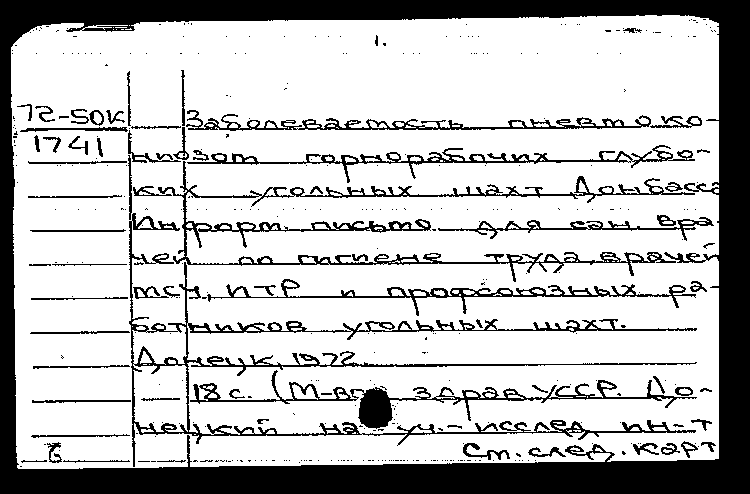 1.
72-50K Заболеваемость пневмоко-
1741 ниозом горнорабочих глубо-
ких угольных шахт Донбасса
Информ. письмо для сан. вра-
чей по гигиене труда, врачей
МСЧ, ИТР и профсоюзных ра-
ботников угольных шахт.
Донецк, 1972
18 с. (М-во здрав УССР. До-
нецкий на уч.- исслед. ин-т
См. след. карт